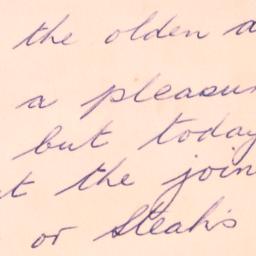 the olden a
a pleasur
but today
t the join
or Steaks